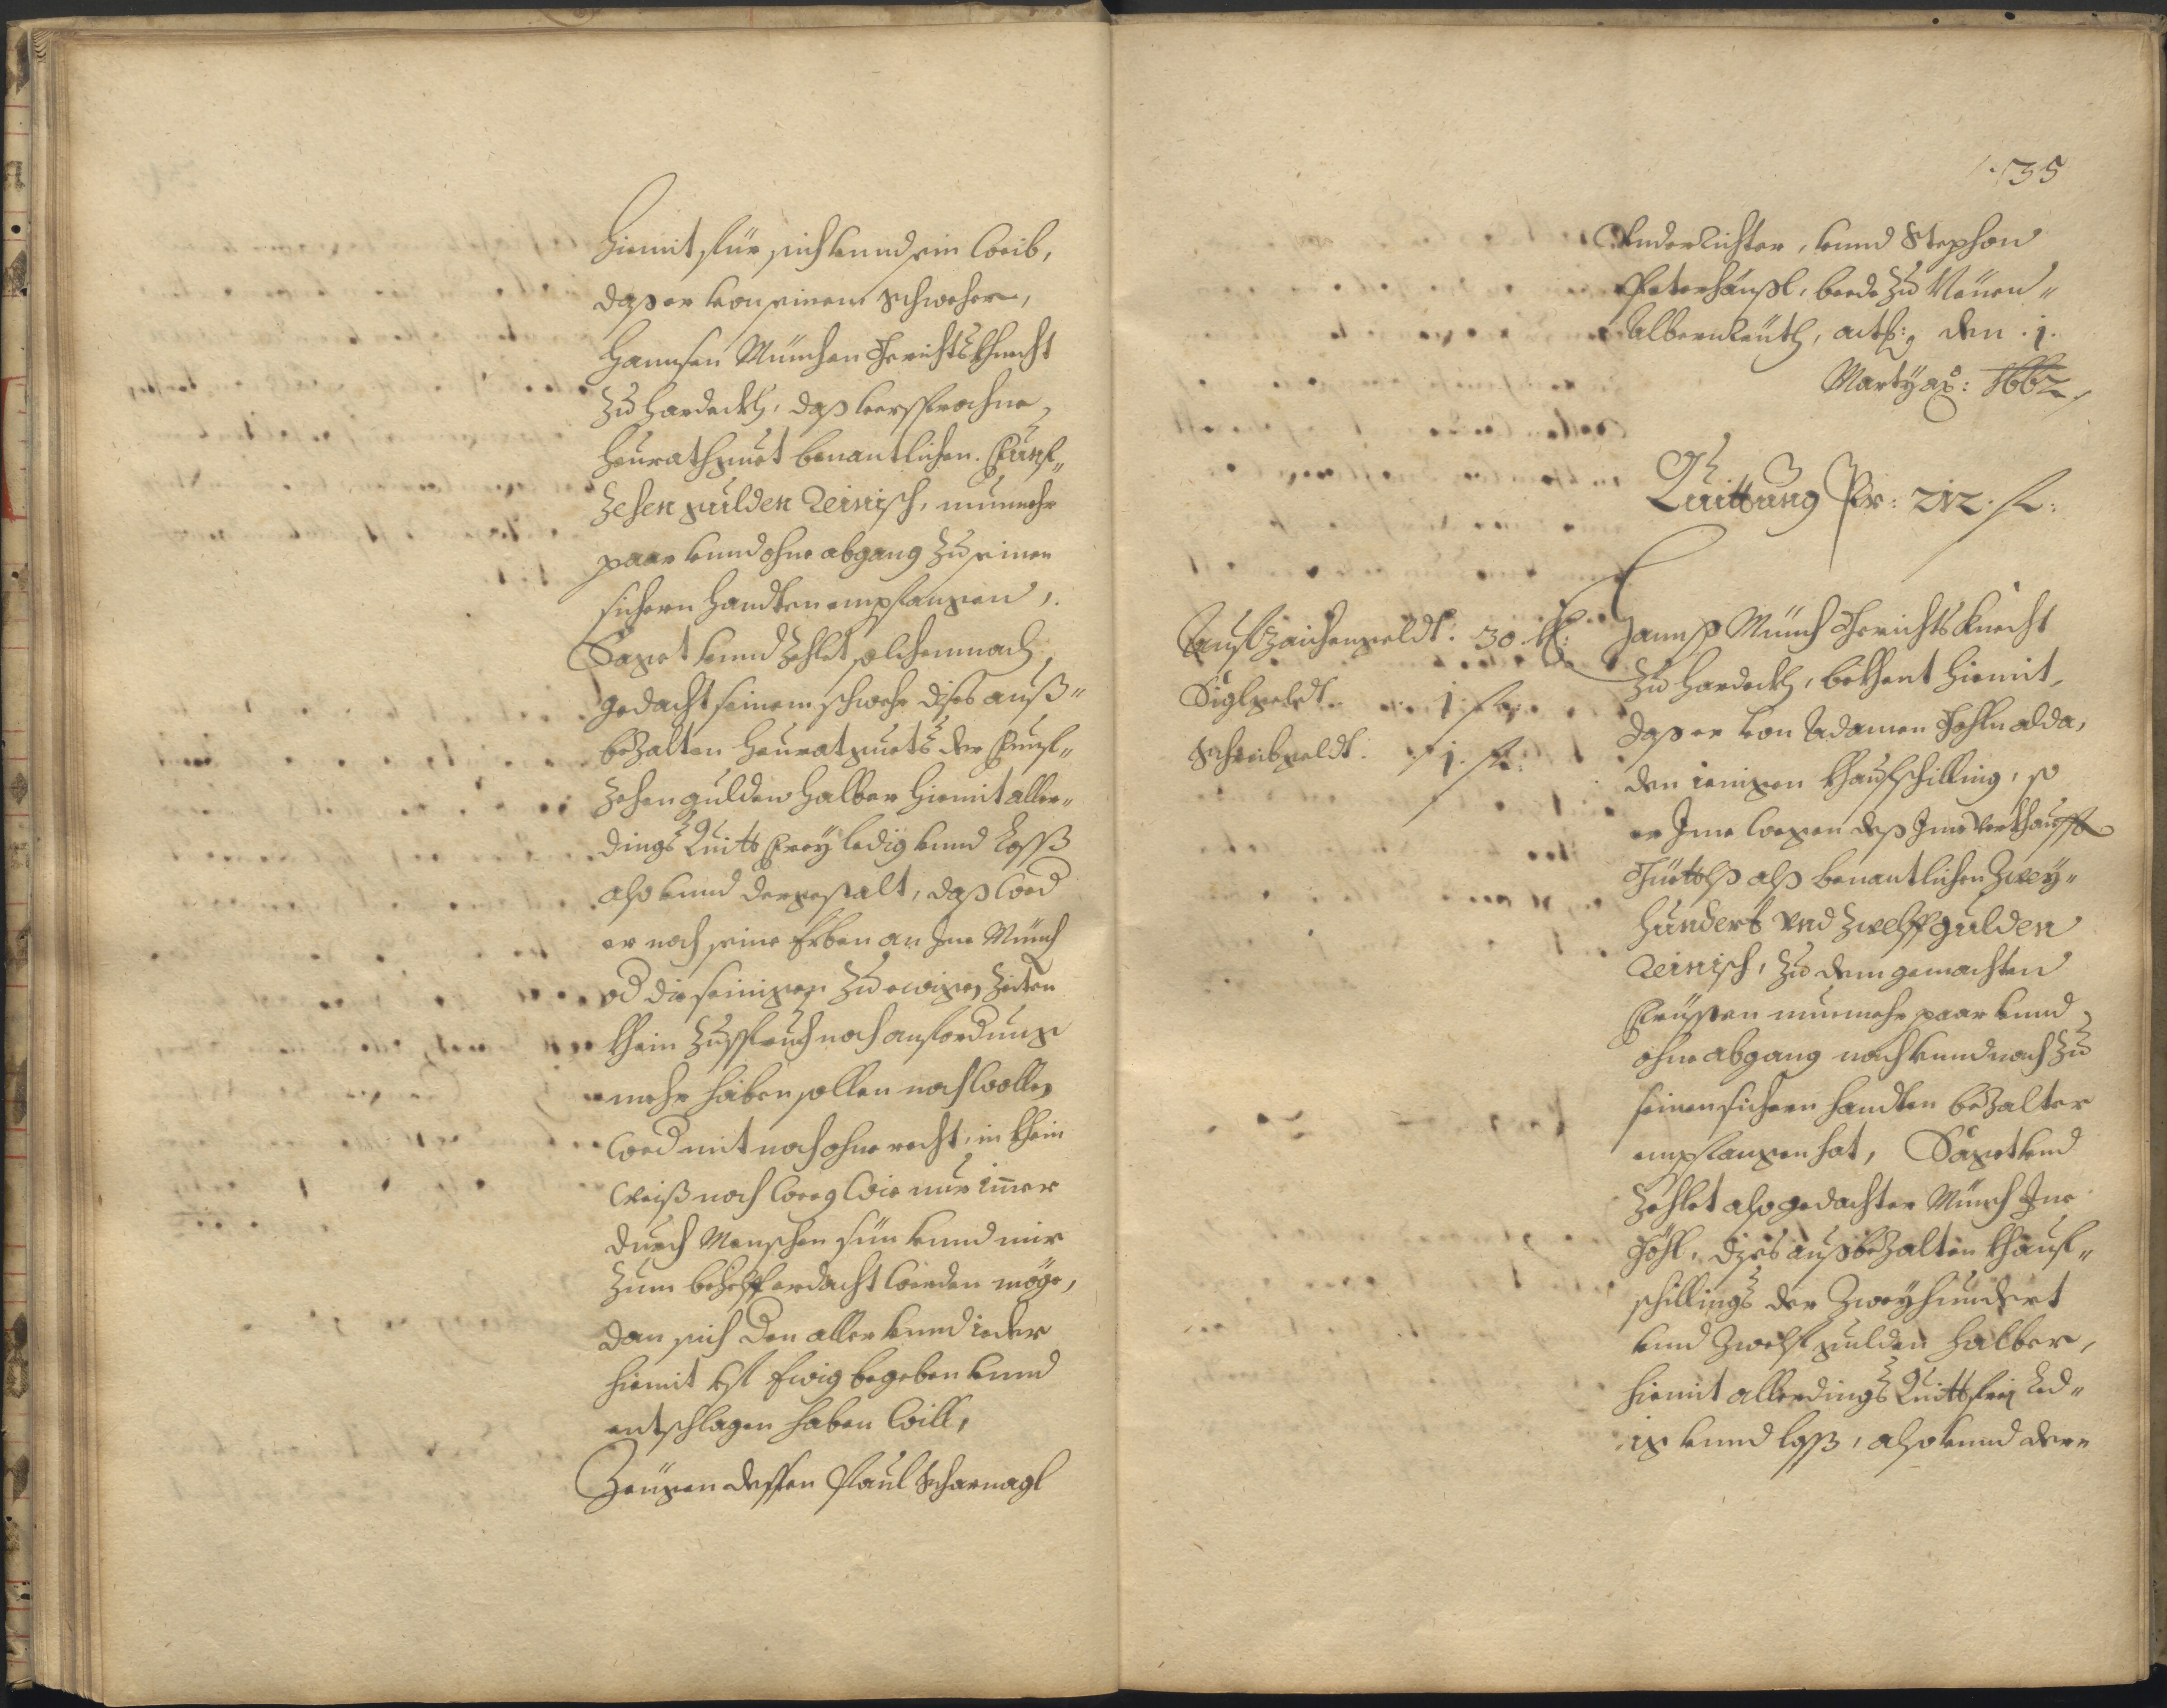 hiemit für sich vnnd sein Weib,
daß er von seinem Schweher,
Hannsen München Gerichtskhnecht
Zu Hardeckh, daß versprochne,
Heurathguet benantlichen. Funf„
Zehen gulden Reinisch, nunmehr
paar vnnd ohne abgang zu seinen
sichern handten empfangen,.
Saget vnnd Zehlet solchemnach,
gedacht seinem schweher dises auß„
bezalten Heuratguets der Funf„
Zehen gulden halber hiemit aller„
dings Quitt Frey ledig vnnd Loß
also vnnd dergestalt, daß Wed
er noch seine Erben an Ine Münch
od die seinigen zu ewigen Zeiten
khein Zuspruch noch anfordrung
mehr haben sollen noch Wollen
Wed mit noch ohne recht, in khein
Weiß noch Weeg Wie nur imer
durch Menschen sün vnnd mir
zum behelff erdacht Werden möge,
dan sich den aller vnnd ieder
hiemit vf Ewig begeben vnnd
entschlagen haben Will,
Zeugen dessen Paul Scharnagl
135
Vnderrichter, vnnd Stephan
Peterhänßl, beede zu Neuen„
Albernreuth, act: den .1.
Marty ao: 1662
Quittung Pr: 212. fl:
Aufzaichengeldt: 30. kr:
Siglgeldt. 1. fl:
Schreibgeldt. 1. fl:
Hannß Münch Gerichts Knecht
zu Hardeckh, bekhent hiemit,
daß er von Adamen Gohln alda,
den ienigen Khaufschilling, so
er Ime Wegen deß Ime verkhaufft
Güettlß alß benantlichen Zwey„
hundert vnd Zwelff gulden
Reinisch, zu dem gemachten
Früsten nunmehr paar vnnd
ohne abgang nach vnnd nach zu
seinen sichern handten bezalter
empfangen hat, Saget vnd
Zehlet also gedachter Münch Ine
Göhl, dises außbezalten Khauf„
schillings der Zweyhundert
vnnd Zwelf gulden halber,
hiemit allerdings Quitt frei Led„
ig vnnd loß, also vnnd der„